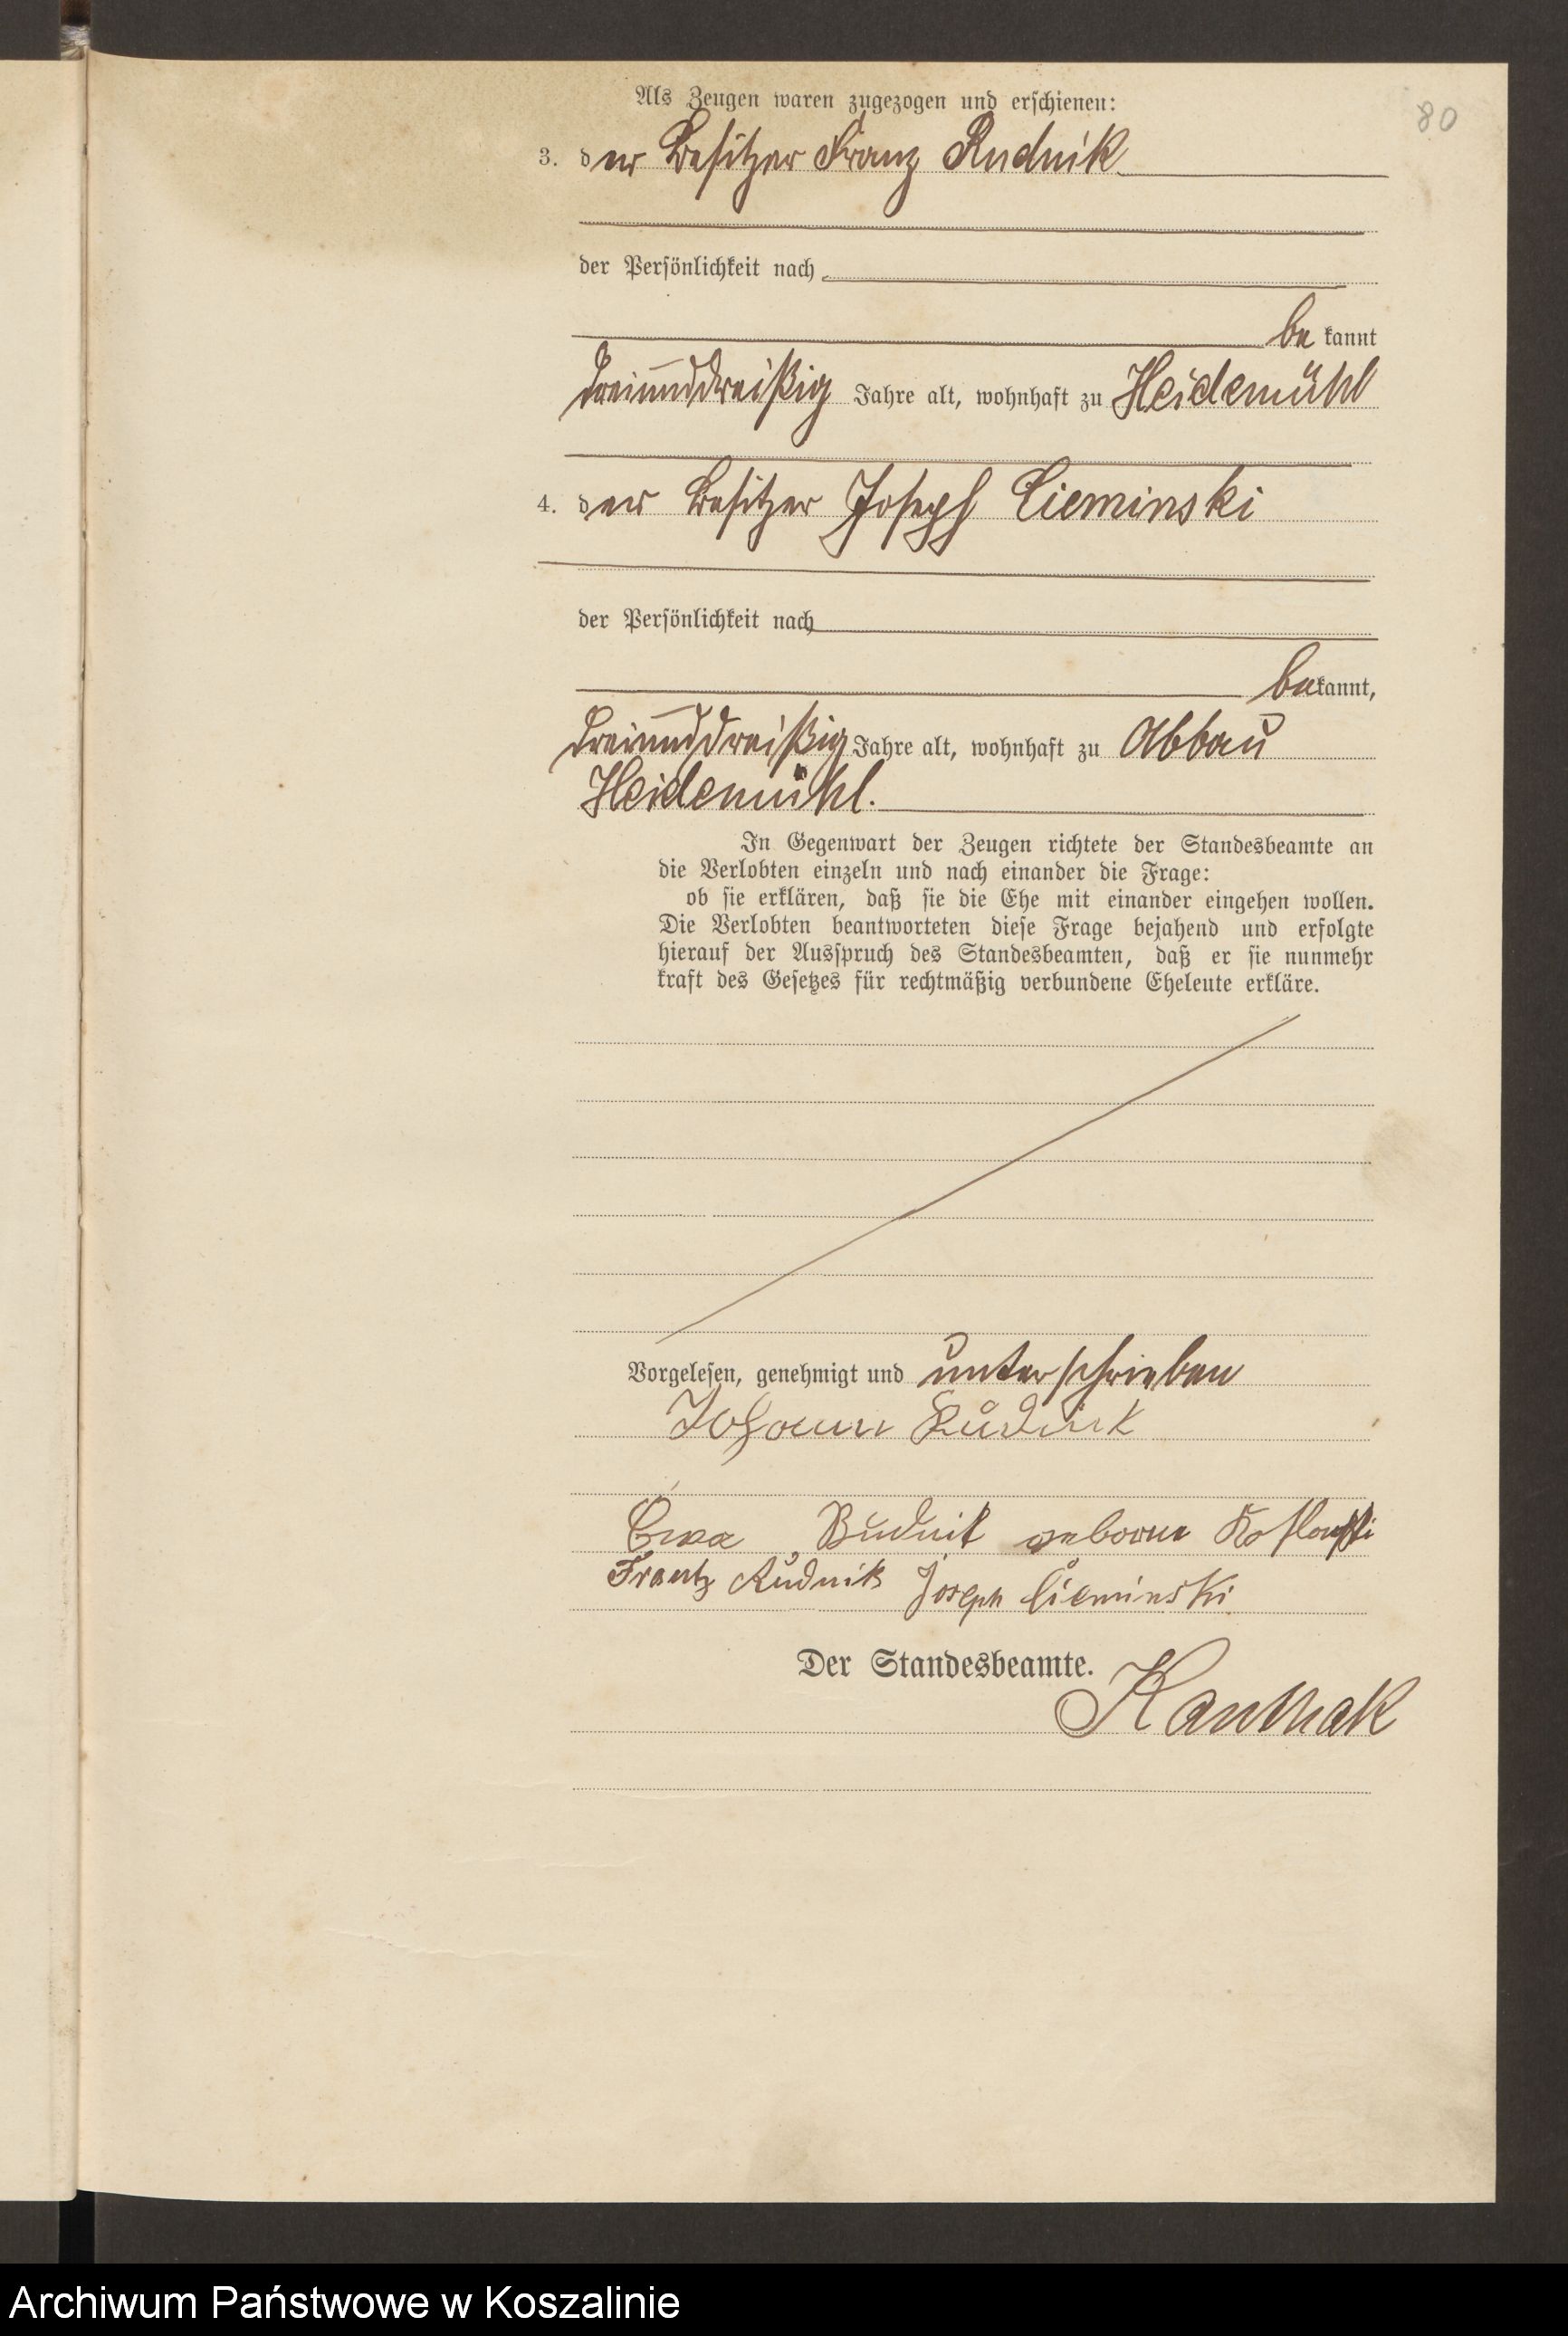 80
Als Zeugen waren zugezogen und erschienen:
3. der Besitzer Franz Rudnik
der Persönlichkeit nach
be kannt
dreiunddreißig Jahre alt, wohnhaft zu Heidemühl
4. der Besitzer Joseph Cieminski
der Persönlichkeit nach
bekannt,
dreiunddreißig Jahre alt, wohnhaft zu Abbau
Heidemühl.
In Gegenwart der Zeugen richtete der Standesbeamte an
die Verlobten einzeln und nach einander die Frage:
ob sie erklären, daß sie die Ehe mit einander eingehen wollen.
Die Verlobten beantworteten diese Frage bejahend und erfolgte
hierauf der Ausspruch des Standesbeamten, daß er sie nunmehr
kraft des Gesetzes für rechtmäßig verbundene Eheleute erkläre.
Vorgelesen, genehmigt und unterschrieben
Johann Rudnik
Ewa Rudnik geborne
Frantz Rudnik Joseph Cieminski
Der Standesbeamte.
Kanthak
Archiwum Państwowe w Koszalinie